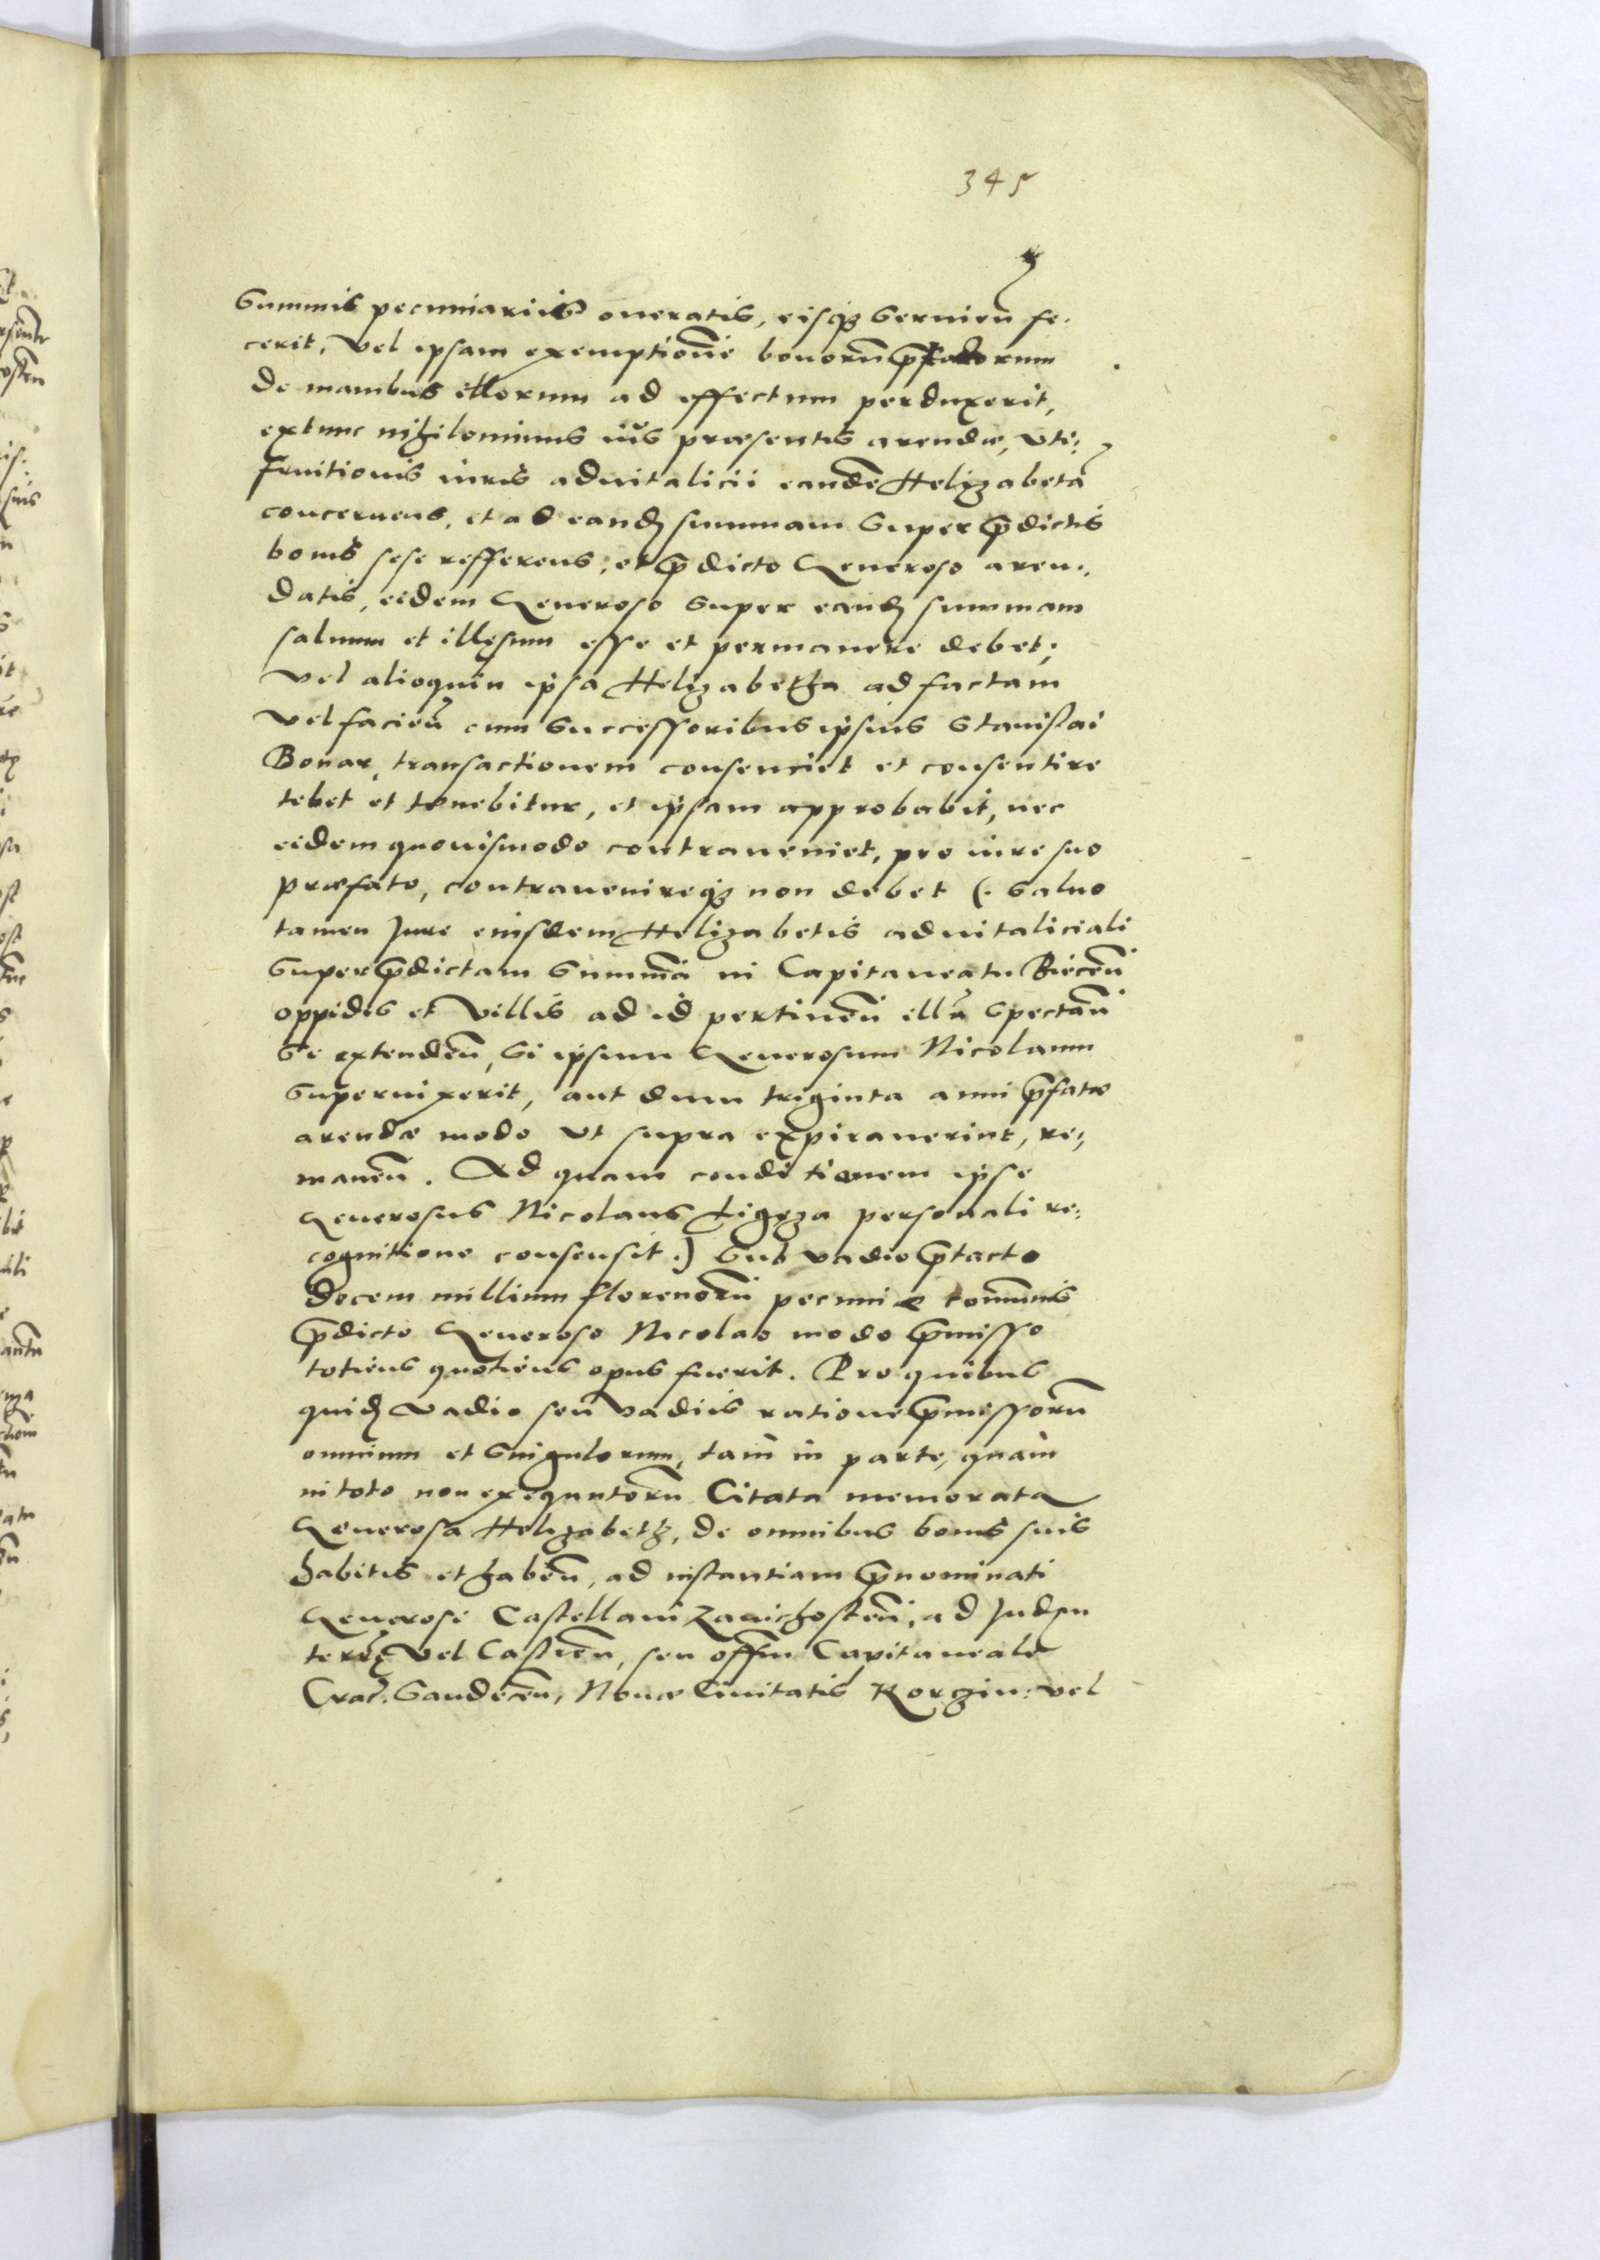 345
summis pecuniariis oneratis, eisq₃ seruien̄ fe-
cerit, vel ipsam exemptionē bonorū p̄fatorum
de manibus illorum ad effectum perduxerit,
extunc nihilominus ius præsentis arendæ, vti-
fruitionis iuris aduitalicii eandē Helizabetā
concernens, et ad eand̨ summam super p̄dictis
bonis sese refferens, et p̄dicto Generoso aren-
datis, eidem Generoso super eand̨ summam
saluum et illęsum esse et permanere debet;
vel alioquin ipsa Helizabetha ad factam
vel facien̄ cum successoribus ipsius Stanislai
Bonar, transactionem consenciet et consentire
tebet et tenebitur, et ipsam approbabit, nec
eidem quouismodo contraueniet, pro iure suo
præfato, contrauenireq₃ non debet (. saluo
tamen jure eiusdem Helizabetis aduitaliciali
super p̄dictam summā in Capitaneatu Biecen̄
oppidis et villis ad id pertinen̄ illū spectan̄
se extenden̄, si ipsum Generosum Nicolaum
superuixerit, aut dum triginta anni p̄fatæ
arendæ modo vt supra expirauerint, re-
manen̄. Ad quam conditionem ipse
Generosus Nicolaus Ligęza personali re-
cognitione consensit .) sub vadio p̄tacto
decem millium florenorū pecuniæ com̄unis
p̄dicto Generoso Nicolao modo p̄misso
totiens quotiens opus fuerit. Pro quibus
quid̨ vadio seu vadiis ratione p̄missorū
omnium et singulorum, tam in parte, quam
in toto non exequutorū Citata memorata
Generosa Helizabeth, de omnibus bonis suis
habitis et haben̄, ad instantiam p̄nominati
Generosi Castellani Zawichosten̄, ad Jud̨m
vel Castren̄, seu offm̄ Capitaneale
Crac. Sandecen̄, Nouæ Ciuitatis Korczin: vel